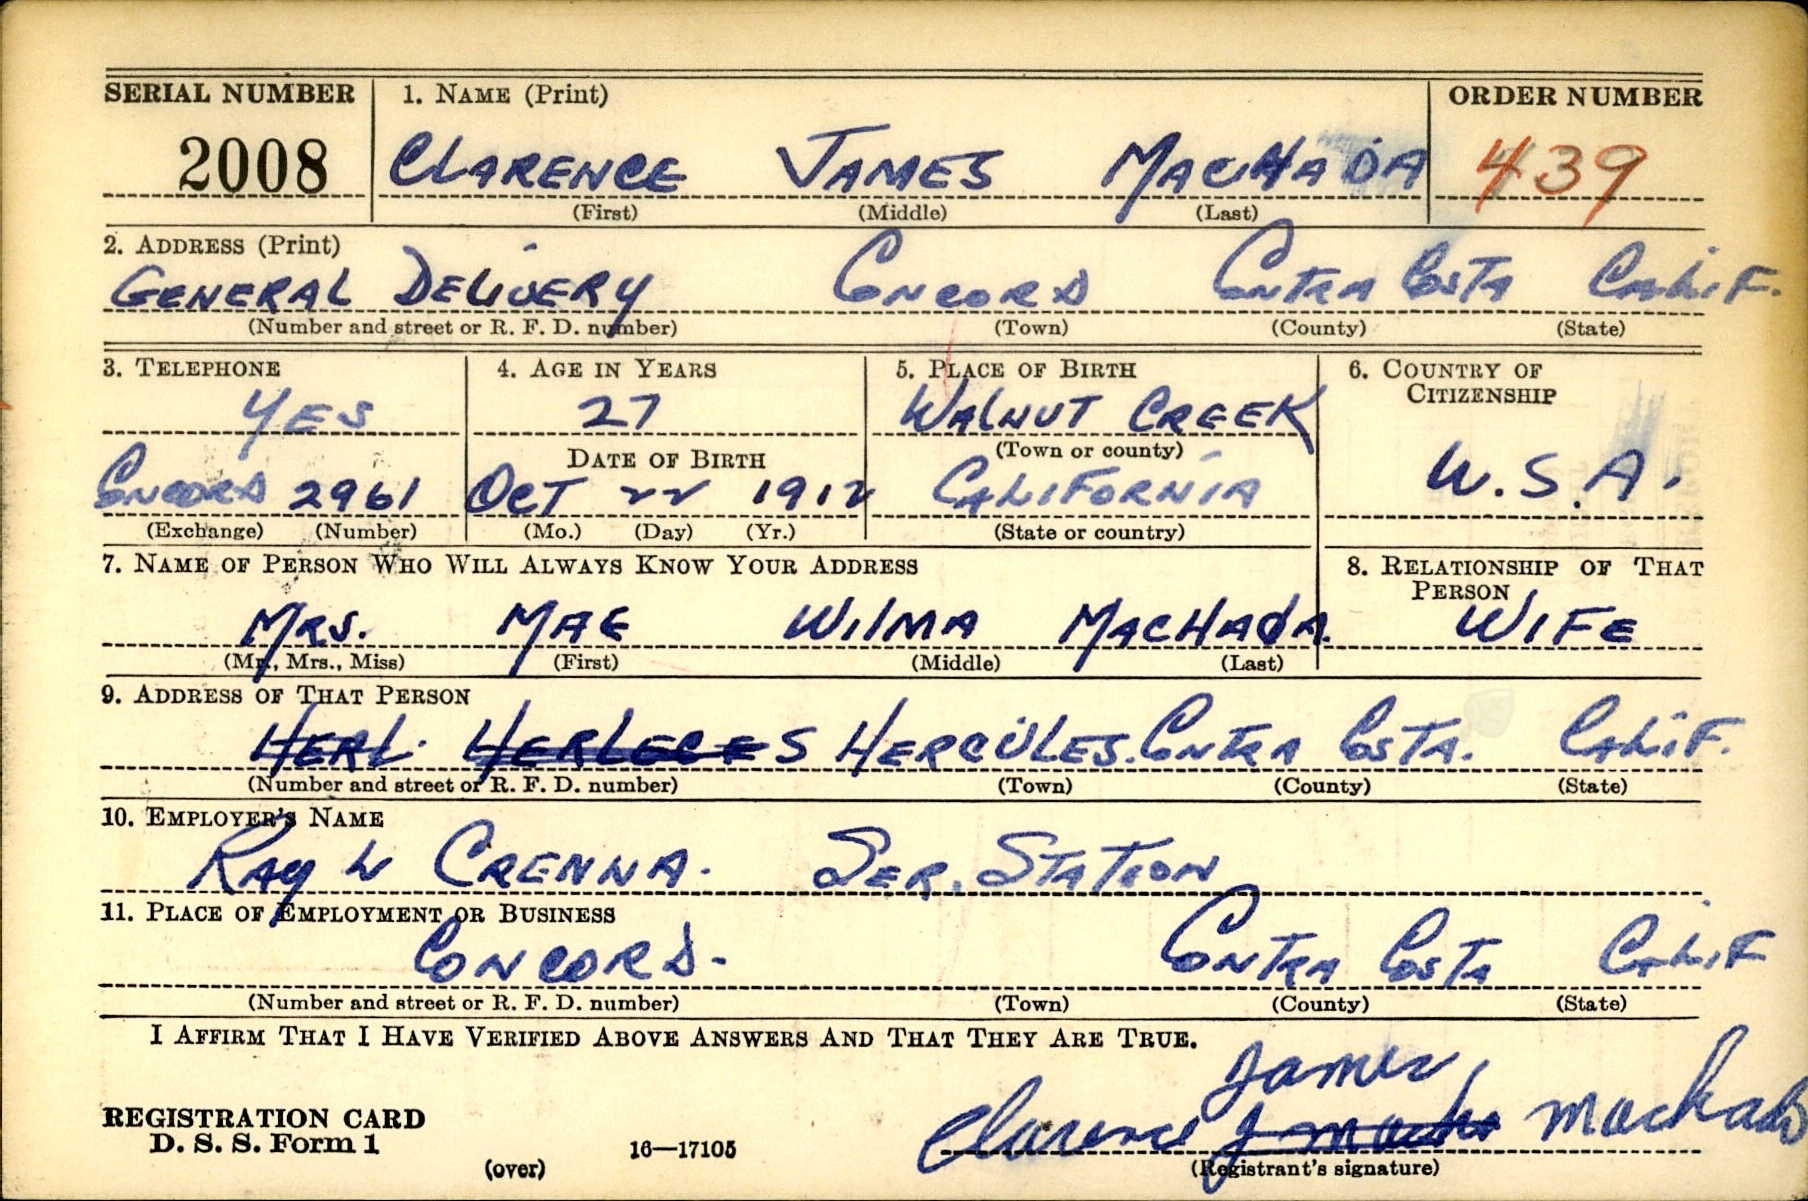 SERIAL NUMBER 1. NAME (Print) ORDER NUMBER
2008 CLARENCE JAMES MACHADA 439
(First) (Middle) (Last)
2. ADDRESS (Print)
GENERAL DELIVERY CONCORD CONTRA COSTA CALIF.
(Number and street or R. F. D. number) (Town) (County) (State)
3. TELEPHONE 4. AGE IN YEARS 5. PLACE OF BIRTH 6. COUNTRY OF CITIZENSHIP
YES 27 WALNUT CREEK
DATE OF BIRTH (Town or county) U.S.A.
CONCORD 2961 OCT 22 1912 CALIFORNIA
(Exchange) (Number) (Mo.) (Day) (Yr.) (State or country)
7. NAME OF PERSON WHO WILL ALWAYS KNOW YOUR ADDRESS 8. RELATIONSHIP OF THAT PERSON
MRS. MAE WILMA MACHADA WIFE
(Mr., Mrs., Miss) (First) (Middle) (Last)
9. ADDRESS OF THAT PERSON
HERL. HERLECES HERCULES. CONTRA COSTA. CALIF.
(Number and street or R. F. D. number) (Town) (County) (State)
10. EMPLOYER'S NAME
RAY W CRENNA. SER. STATION
11. PLACE OF EMPLOYMENT OR BUSINESS
CONCORD. CONTRA COSTA CALIF
(Number and street or R. F. D. number) (Town) (County) (State)
I AFFIRM THAT I HAVE VERIFIED ABOVE ANSWERS AND THAT THEY ARE TRUE.
James
REGISTRATION CARD
Clarence J Machado
D. S. S. Form 1 16—17105
(over) (Registrant's signature)